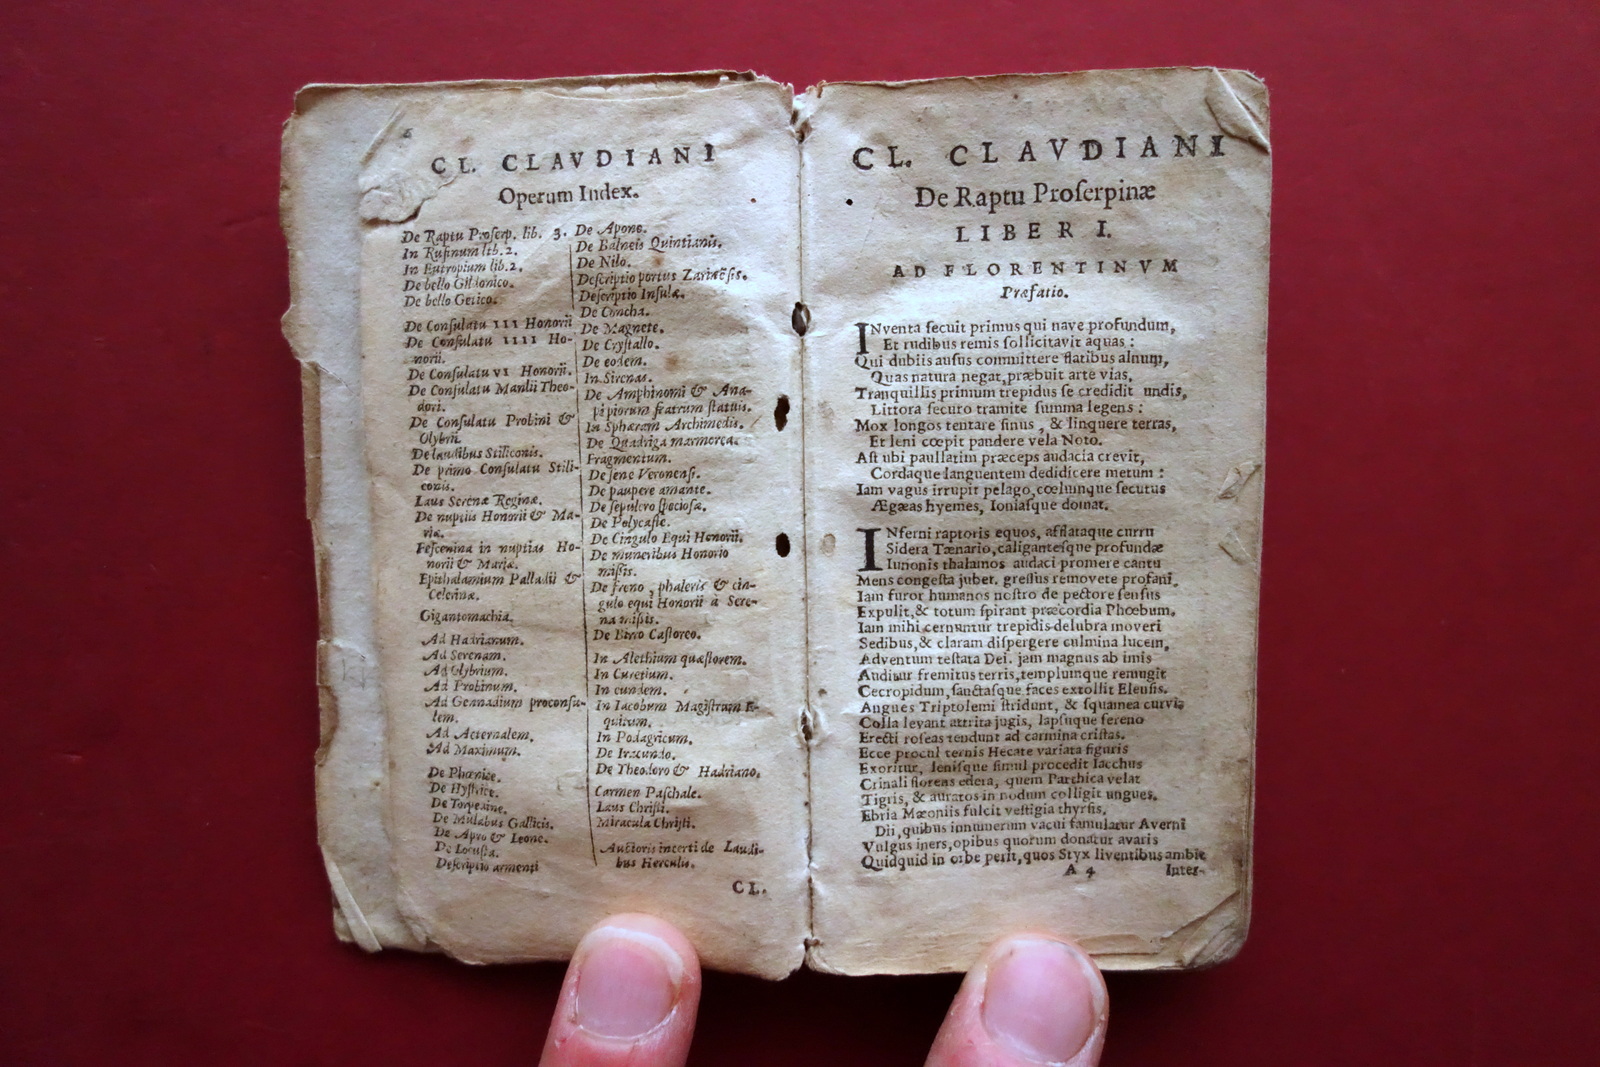 6
CL. CLAVDIANI
Operum Index.
De Raptu Proserp. lib. 3.
In Rufinum lib. 2.
In Eutropium lib. 2.
De bello Gildonico.
De bello Getico.
De Consulatu III Honorii
De Consulatu IIII Ho-
norii.
De Consulatu VI Honorii.
De Consulatu Manlii Theo-
dori.
De Consulatu Probini &
Olybrii.
De laudibus Stiliconis.
De primo Consulatu Stili-
conis.
Laus Serenæ Reginæ.
De nuptiis Honorii & Ma-
riæ.
Fescenina in nuptias Ho-
norii & Mariæ.
Epithalamium Palladii &
Celerinæ.
Gigantomachia.
Ad Hadrianum.
Ad Serenam.
Ad Olybrium.
Ad Probinum.
Ad Gennadium proconsu-
lem.
Ad Aeternalem.
Ad Maximum.
De Phœnice.
De Hystrice.
De Torpedine.
De Mulabus Gallicis.
De Apro & Leone.
De Locusta.
Descriptio armenti
De Apono.
De Balneis Quintianis.
De Nilo.
Descriptio portus Zarnæsis.
Descriptio Insulæ.
De Concha.
De Magnete.
De Crystallo.
De eodem.
In Sirenas.
De Amphinomi & Ana-
pi piorum fratrum statuis.
In Sphæram Archimedis.
De Quadriga marmorea.
Fragmentum.
De sene Veronensi.
De paupere amante.
De sepulcro speciosæ.
De Polycaste.
De Cingulo Equi Honorii.
De muneribus Honorio
missis.
De freno, phaleris & cin-
gulo equi Honorii a Sere-
na missis.
De Birro Castoreo.
In Alethium quæstorem.
In Curetium.
In eundem.
In Iacobum Magistrum E-
quitum.
In Podagricum.
De Iracundo.
De Theodoro & Hadriano.
Carmen Paschale.
Laus Christi.
Miracula Christi.
Auctoris incerti de Laudi-
bus Herculis.
CL.
CL. CLAVDIANI
De Raptu Proserpinæ
LIBER I.
AD FLORENTINVM
Præfatio.
INventa secuit primus qui nave profundum,
Et rudibus remis sollicitavit aquas :
Qui dubiis ausus committere flatibus alnum,
Quas natura negat, præbuit arte vias,
Tranquillis primum trepidus se credidit undis,
Littora securo tramite summa legens :
Mox longos tentare sinus, & linquere terras,
Et leni cœpit pandere vela Noto.
Ast ubi paullatim præceps audacia crevit,
Cordaque languentem dedidicere metum :
Iam vagus irrupit pelago, cœlumque secutus
Ægæas hyemes, Ioniasque domat.
INferni raptoris equos, afflataque curru
Sidera Tænario, caligantesque profundæ
Iunonis thalamos audaci promere cantu
Mens congesta jubet. gressus removete profani,
Iam furor humanos nostro de pectore sensus
Expulit, & totum spirant præcordia Phœbum.
Iam mihi cernuntur trepidis delubra moveri
Sedibus, & claram dispergere culmina lucem,
Adventum testata Dei. jam magnus ab imis
Auditur fremitus terris, templumque remugit
Cecropidum, sanctasque faces extollit Eleusis.
Angues Triptolemi stridunt, & squamea curvis
Colla levant attrita jugis, lapsuque sereno
Erecti roseas tendunt ad carmina cristas.
Ecce procul ternis Hecate variata figuris
Exoritur, lenisque simul procedit Iacchus
Crinali floreas edera, quem Parthica velat
Tigris, & auratos in nodum colligit ungues.
Ebria Mæoniis fulcit vestigia thyrsis.
Dii, quibus innumerum vacui famulatur Averni
Vulgus iners, opibus quorum donatur avaris
Quidquid in orbe perit, quos Styx liventibus ambit
A 4 Inter-